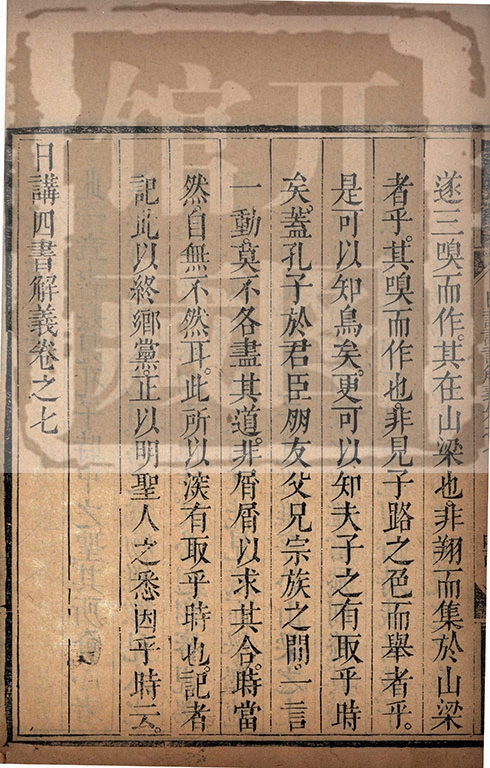 遂三嗅而作。其在山梁也。非翔而集於山梁
者乎。其嗅而作也。非見子路之色而舉者乎。
是可以知鳥矣。更可以知夫子之有取乎時
矣。蓋孔子於君臣朋友父兄宗族之間。一言
一動。莫不各盡其道。非屑屑以求其合。時當
然自無不然耳。此所以深有取乎時也。記者
記此以終鄉黨。正以明聖人之悉因乎時云。
日講四書解義卷之七